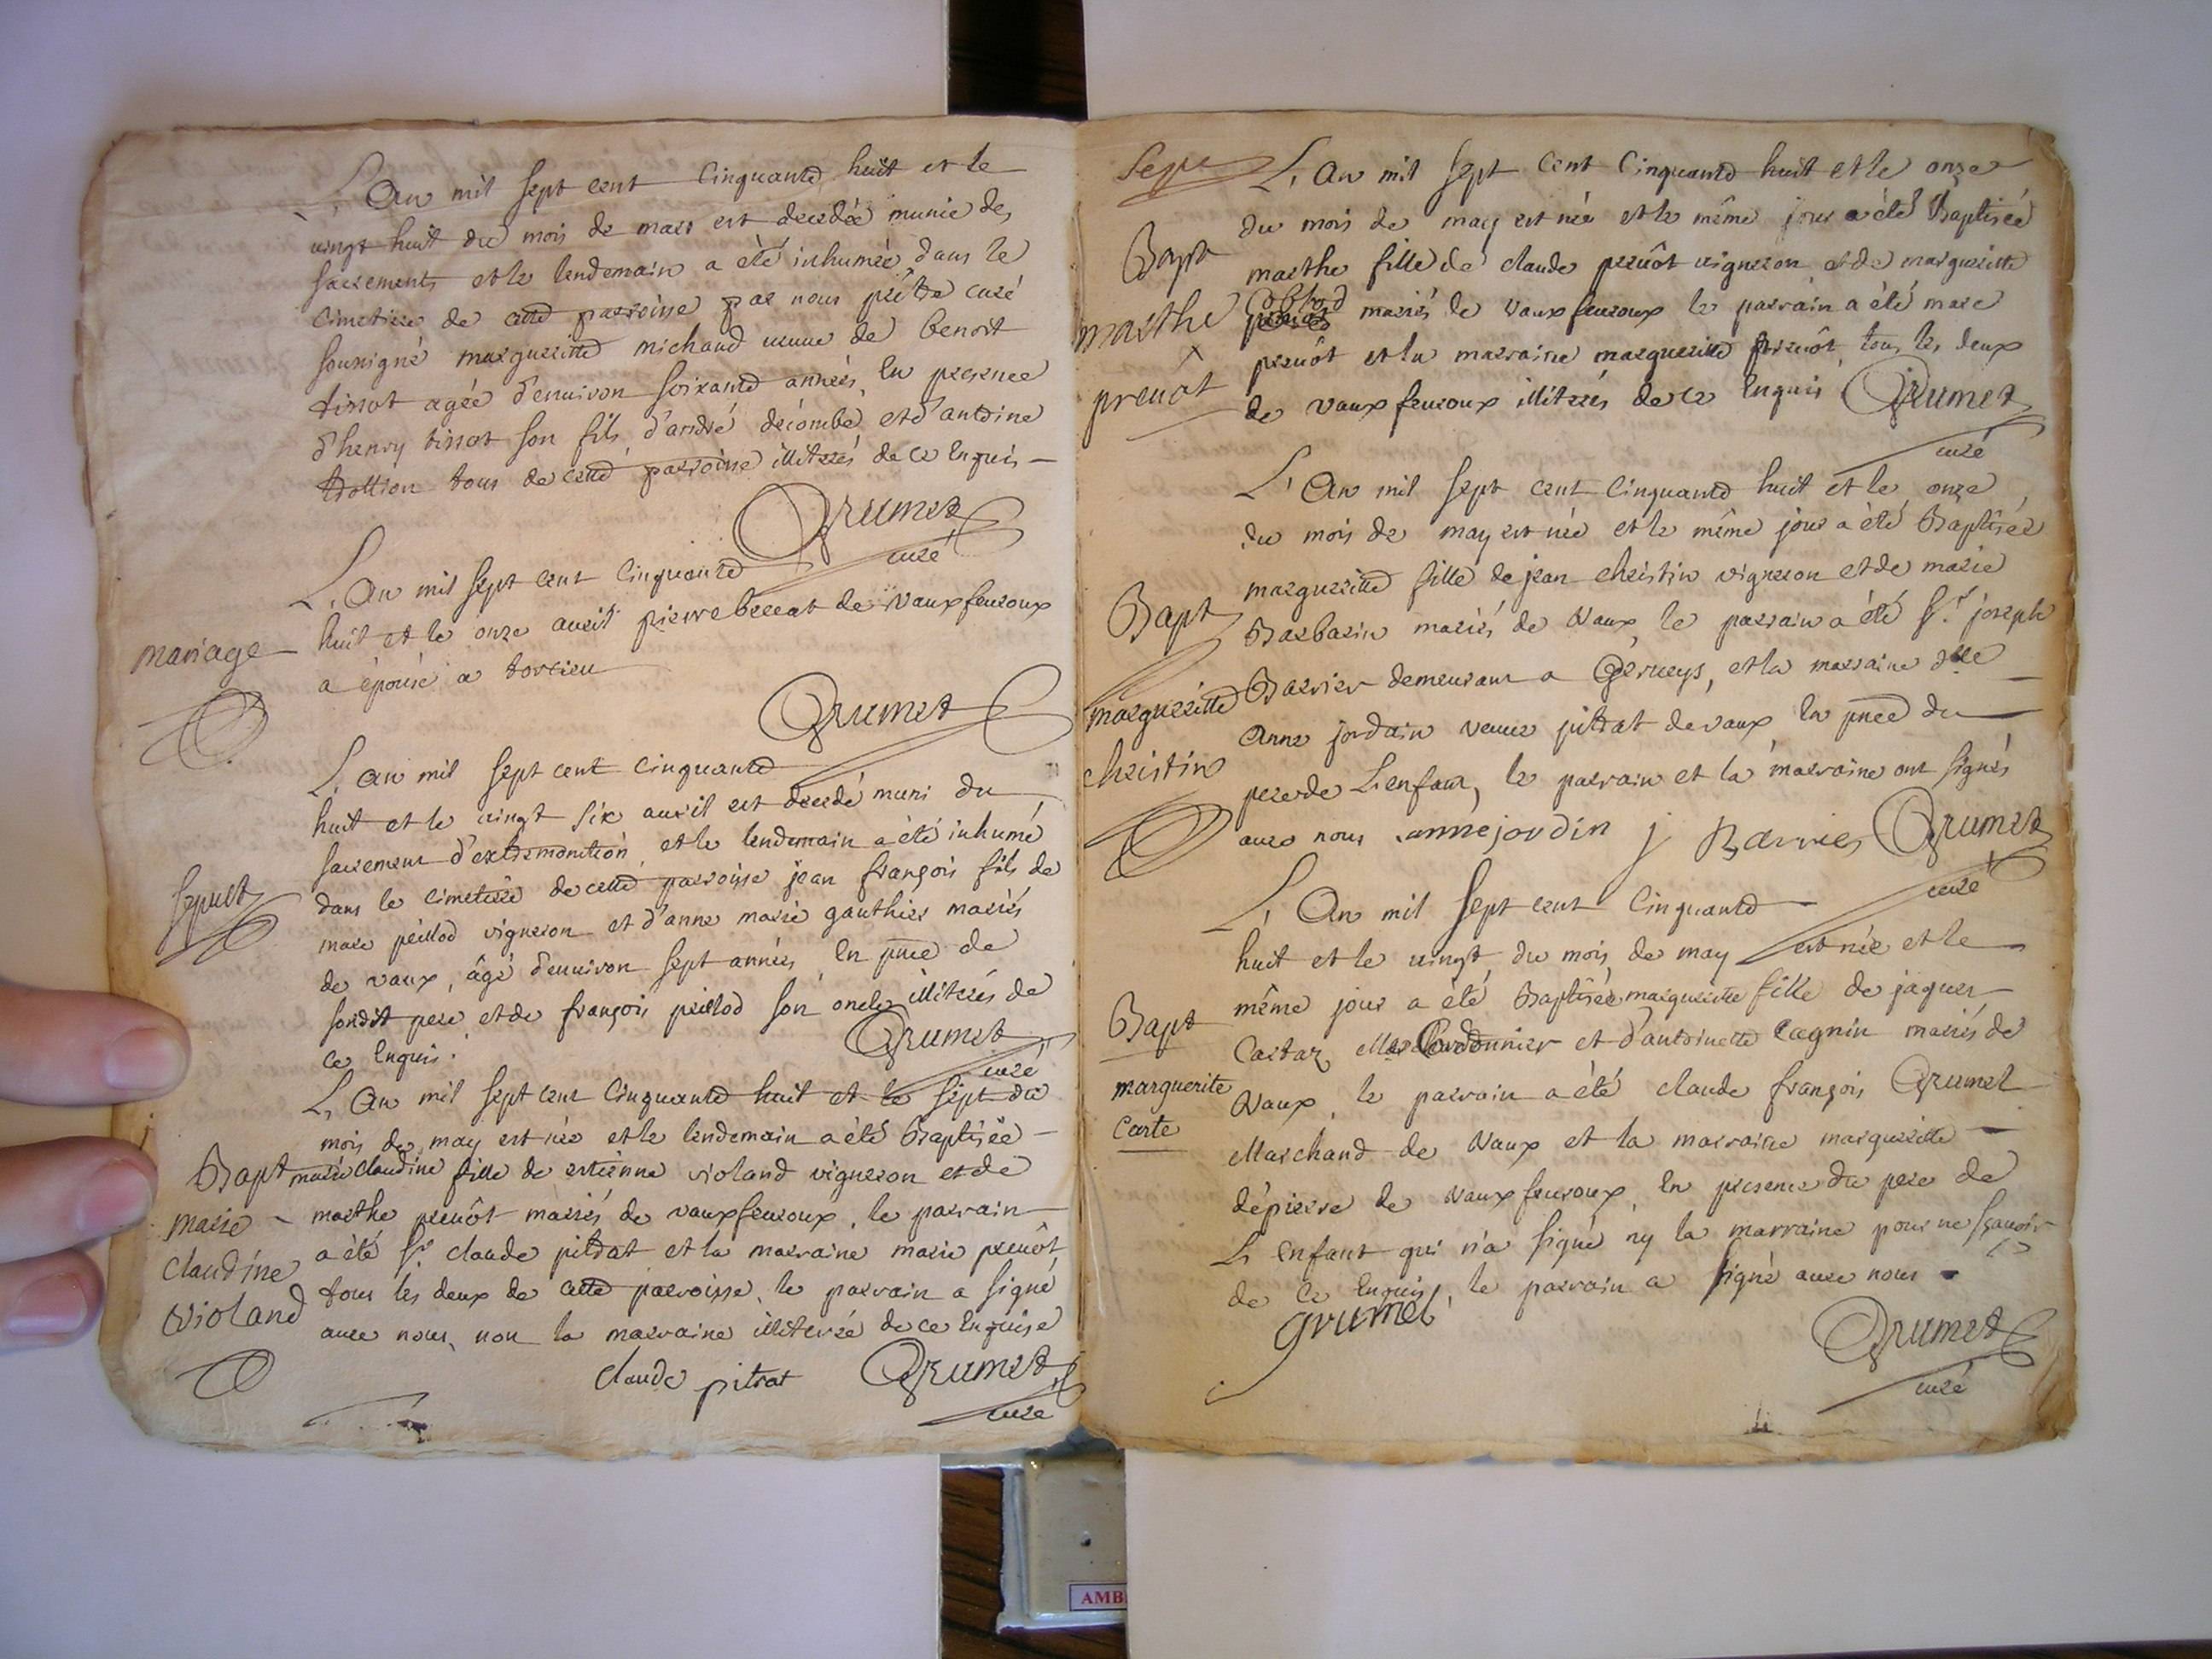 L'An mil sept cent cinquante huit et le
vingt huit du mois de mars est decedée munie des
sacrements et le lendemain a été inhumée dans le
cimetiere de cette parroisse par nous prêtre curé
sousigné margueritte michaud veuve de benoit
tissot agée d'environ soixante années, en presence
d'henry tissot son fils d'andré décombe et d'antoine
trollion tous de cette parroisse illiterés de ce enquis
Grumet
curé
L'An mil sept cent cinquante
mariage
huit et le onze avril pierre berrat de vaux fevroux
a épousé a torcieu
Grumet
L'an mil sept cent cinquante
huit et le vingt six avril est decedé muni du
sacrement d'extremonction et le lendemain a été inhumé
sepult
dans le cimetiere de cette parroisse jean françois fils de
marc peillod vigneron et d'anne marie gauthier mariés
de vaux, âgé d'environ sept années, en pnce de
sondit pere et de françois peillod son oncle illiterés de
ce enquis.
Grumet
curé
L'An mil sept cent cinquante huit et le sept du
mois de may est née et le lendemain a été Baptisée
Bapt
marie claudine fille de estienne violand vigneron et de
marie
marthe prevôt mariés de vaux fevroux, le parrain
claudine
a été sr. claude pitrat et la marraine marie prevôt
tous les deux de cette parroisse, le parrain a signé
violand
avec nous, non la marraine illiterée de ce enquise
claude pitrat Grumet
curé
L'An mil sept cent cinquante huit et le onze
du mois de may est née et le même jour a été Baptisée
Bapt
marthe fille de claude prevôt vigneron et de margueritte
marthe
mariés de vaux fevroux le parrain a été marc
prevôt et la marraine margueritte prevôt tous les deux
prevôt
de vaux fevroux illiterés de ce enquis Grumet
curé
L'An mil sept cent cinquante huit et le onze
du mois de may est née et le même jour a été Baptisée
margueritte fille de jean christin vigneron et de marie
Bapt
Barbarin mariés de vaux, le parrain a été sr. joseph
Barrier demeurant a Gerveys, et la marraine dlle
margueritte
anne jordain veuve pitrat de vaux en pnce du
christin
pere de L'enfant, le parrain et la marraine ont signés
avec nous anne jordin j Barrier Grumet
curé
L'An mil sept cent cinquante
huit et le vingt du mois de may est née et le
même jour a été Baptisée margueritte fille de jaques
Bapt
Cartaz Cordonnier et d'antoinette Cagnin mariés de
marguerite
vaux, le parrain a été claude françois Grumet
carte
Marchand de vaux et la marraine margueritte
dépierre de vaux fevroux, en presence du pere de
L'enfant qui n'a signé ny la marraine pour ne sçavoir
de ce enquis, le parrain a signé avec nous
grumet
Grumet
curé
AMB